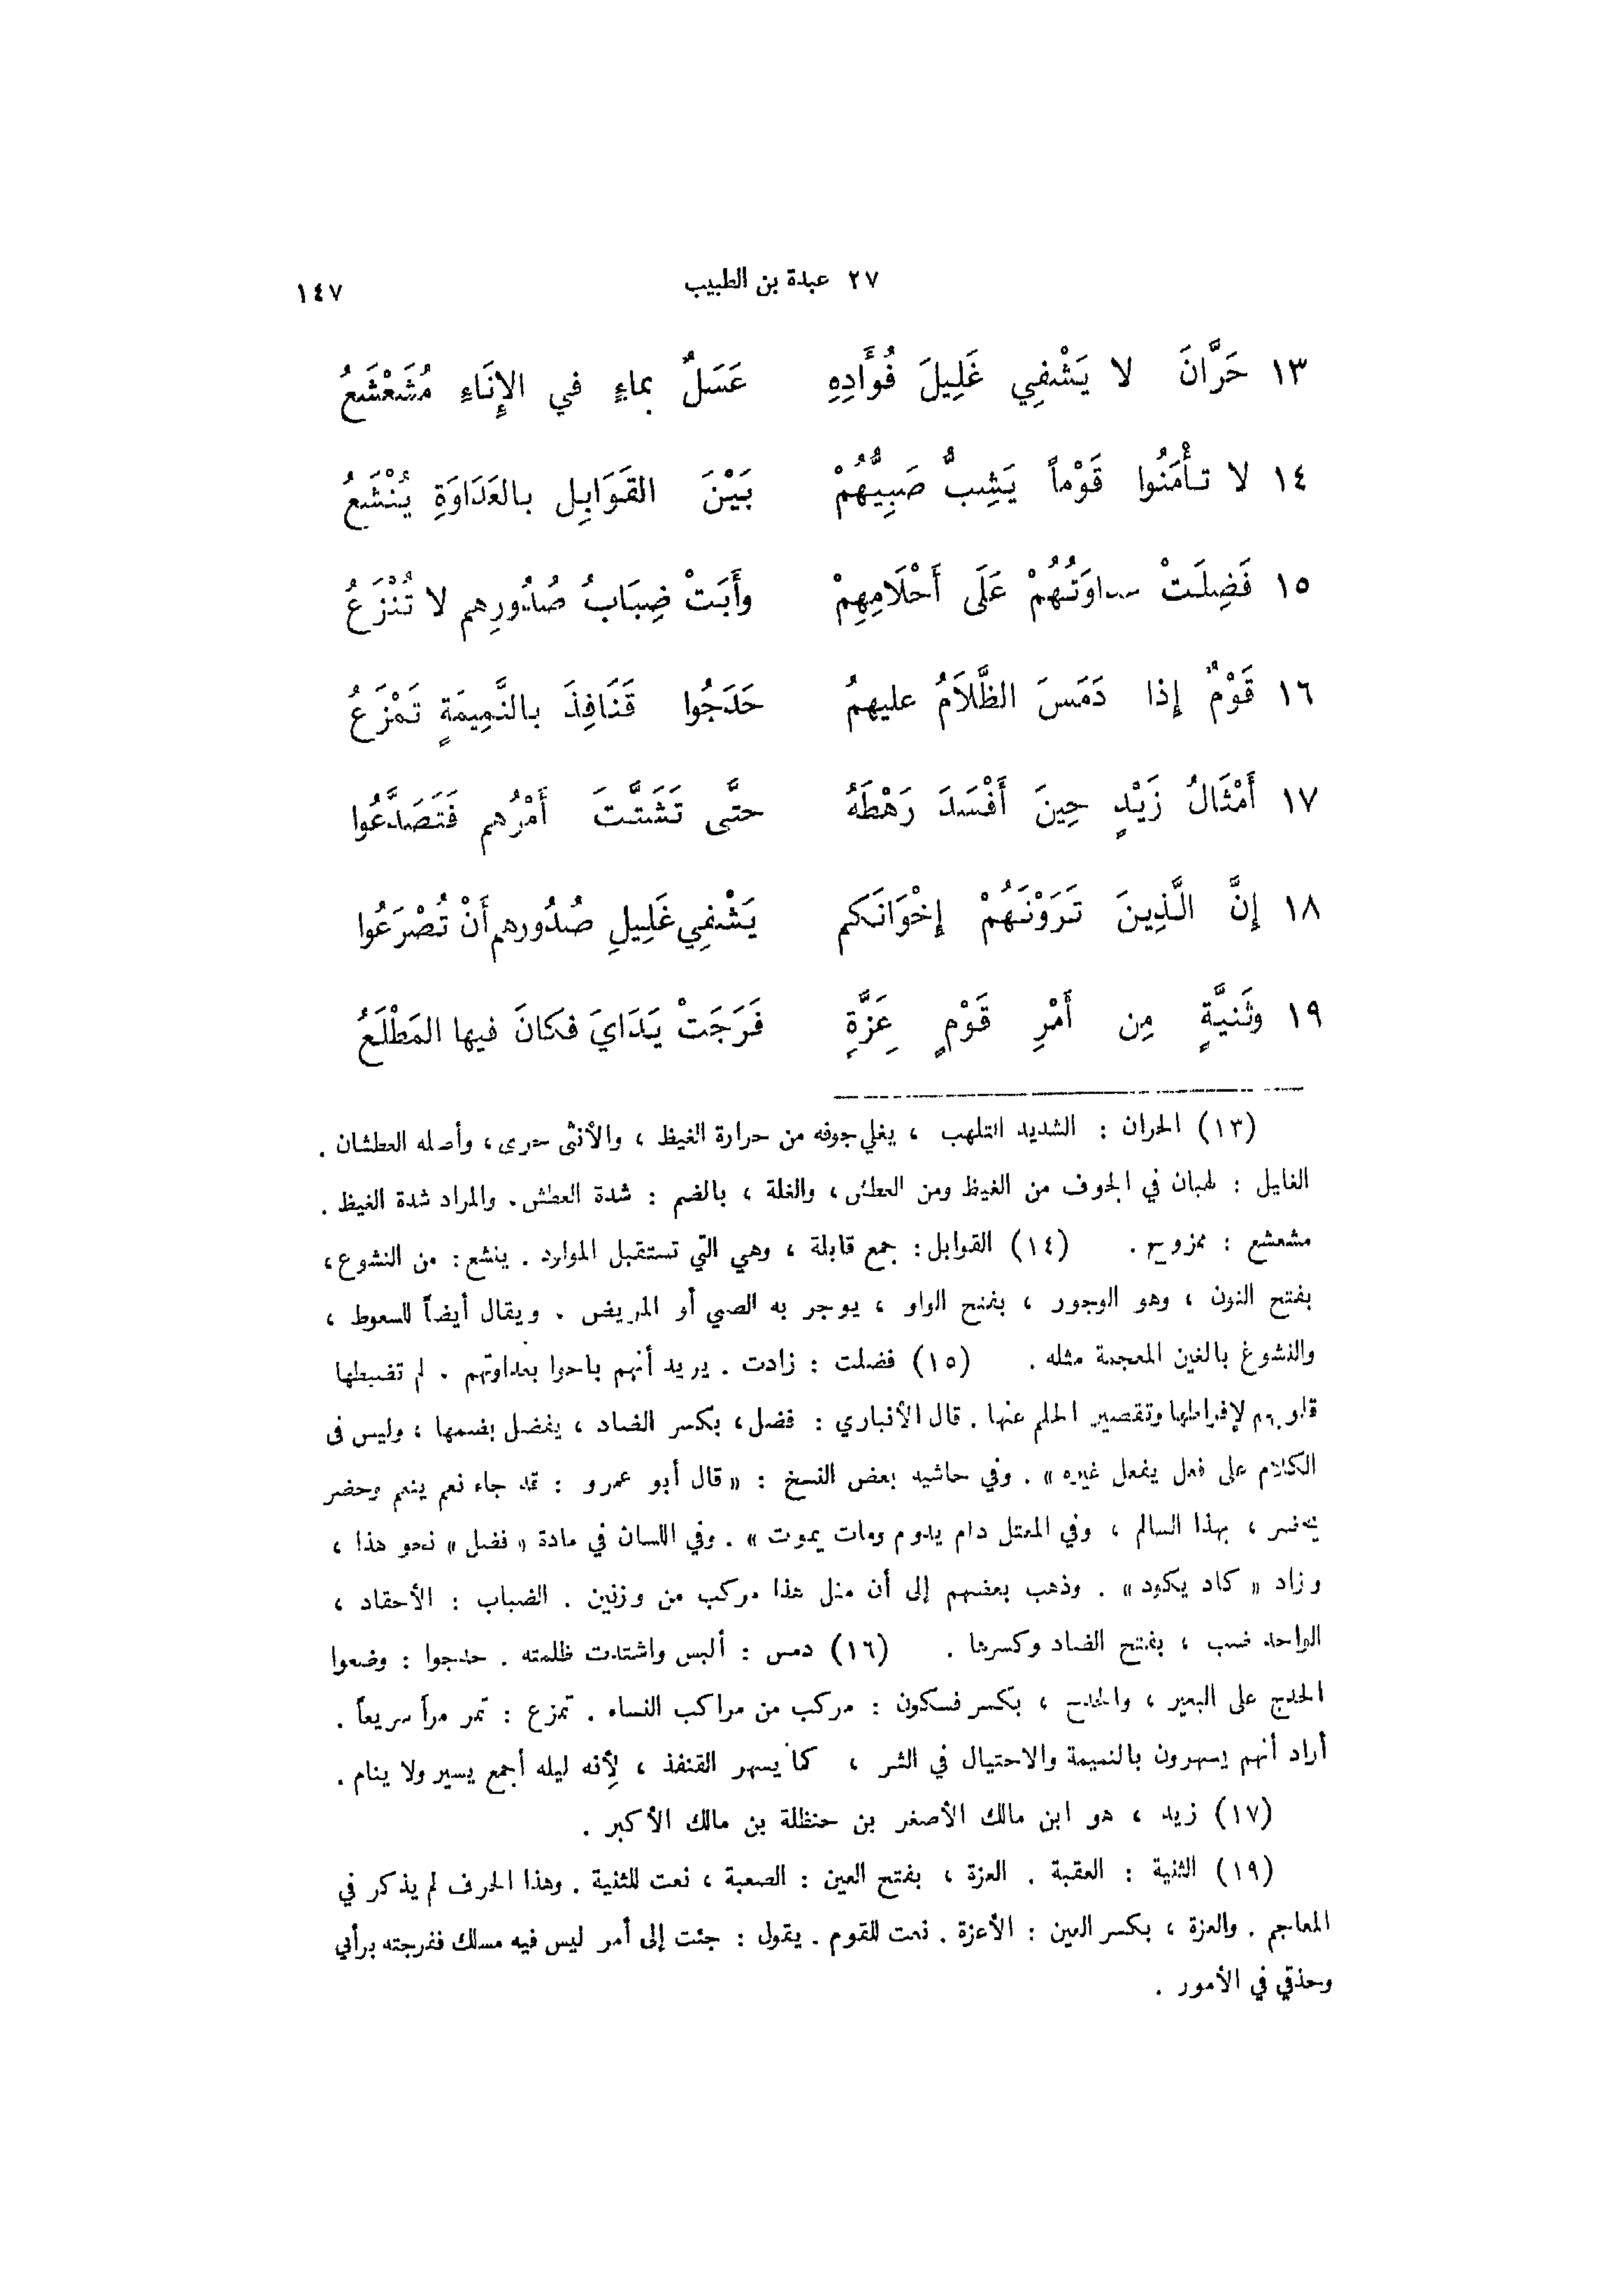 ٢٧ عبدة بن الطبيب
١٤٧
١٣ حَرَّانَ لا يَشْفِي غَلِيلَ فُؤَادِهِ عَسَلٌ بماءٍ في الإِنَاءِ مُشَعْشَعُ
١٤ لا تأْمَنُوا قَوْماً يَشِبُّ صَبِيُّهُمْ بَيْنَ القَوَابِلِ بالعَدَاوَةِ يُنْشَعُ
١٥ فَضِلَتْ عداوَتُهُمْ عَلَى أَحْلَامِهِمْ وأَبَتْ ضِبَابُ صُدُورِهِم لا تُنْزَعُ
١٦ قَوْمٌ إِذا دَمَسَ الظَّلَامُ عليهمُ حَدَجُوا قَنَافِذَ بالنَّمِيمَةِ تَمْزَعُ
١٧ أَمْثَالُ زَيْدٍ حِينَ أَفْسَدَ رَهْطَهُ حتَّى تَشَتَّتَ أَمْرُهم فَتَصَدَّعُوا
١٨ إِنَّ الَّذِينَ تَرَوْنَهُمْ إِخْوَانَكم يَشْفِي غَلِيلَ صُدُورهم أَنْ تُصْرَعُوا
١٩ وثَنيَّةٍ مِن أَمْرِ قَوْمٍ عَِزَّةٍ فَرَجَتْ يَدَايَ فكانَ فيها المَطْلَعُ
(١٣) الحران : الشديد التلهب ، يغلي جوفه من حرارة الغيظ ، والأنثى حرى ، وأصله العطشان .
الغليل : لهبان في الجوف من الغيظ ومن العطش ، والغلة ، بالضم : شدة العطش . والمراد شدة الغيظ .
مشعشع : ممزوج . (١٤) القوابل : جمع قابلة ، وهي التي تستقبل المولود . ينشع : من النشوع ،
بفتح النون ، وهو الوجور ، بفتح الواو ، يوجر به الصبي أو المريض . ويقال أيضاً للسعوط ،
والنشوغ بالغين المعجمة مثله . (١٥) فضلت : زادت . يريد أنهم باحوا بعداوتهم . لم تضبطها
قلوبهم لإفراطها وتقصير الحلم عنها . قال الأنباري : فضل ، بكسر الضاد ، يفضل بضمها ، وليس فى
الكلام على فعل يفعل غيره » . وفي حاشية بعض النسخ : « قال أبو عمرو : قد جاء نعم ينعم وحضر
يحضر ، بهذا السالم ، وفي المعتل دام يدوم ومات يموت » . وفي اللسان في مادة « فضل » نحو هذا ،
وزاد « كاد يكود » . وذهب بعضهم إلى أن مثل هذا مركب من وزنين . الضباب : الأحقاد ،
الواحد ضب ، بفتح الضاد وكسرها . (١٦) دمس : ألبس واشتدت ظلمته . حدجوا : وضعوا
الحدج على البعير ، والحدج ، بكسر فسكون : مركب من مراكب النساء . تمزع : تمر مراً سريعاً .
أراد أنهم يسهرون بالنميمة والاحتيال في الشر ، كما يسهر القنفذ ، لأنه ليله أجمع يسير ولا ينام .
(١٧) زيد ، هو ابن مالك الأصغر بن حنظلة بن مالك الأكبر .
(١٩) الثنية : العقبة . العزة ، بفتح العين : الصعبة ، نعت للثنية . وهذا الحرف لم يذكر في
المعاجم . والعزة ، بكسر العين : الأعزة . نعت للقوم . يقول : جئت إلى أمر ليس فيه مسلك ففرجته برأيي
وحذقي في الأمور .